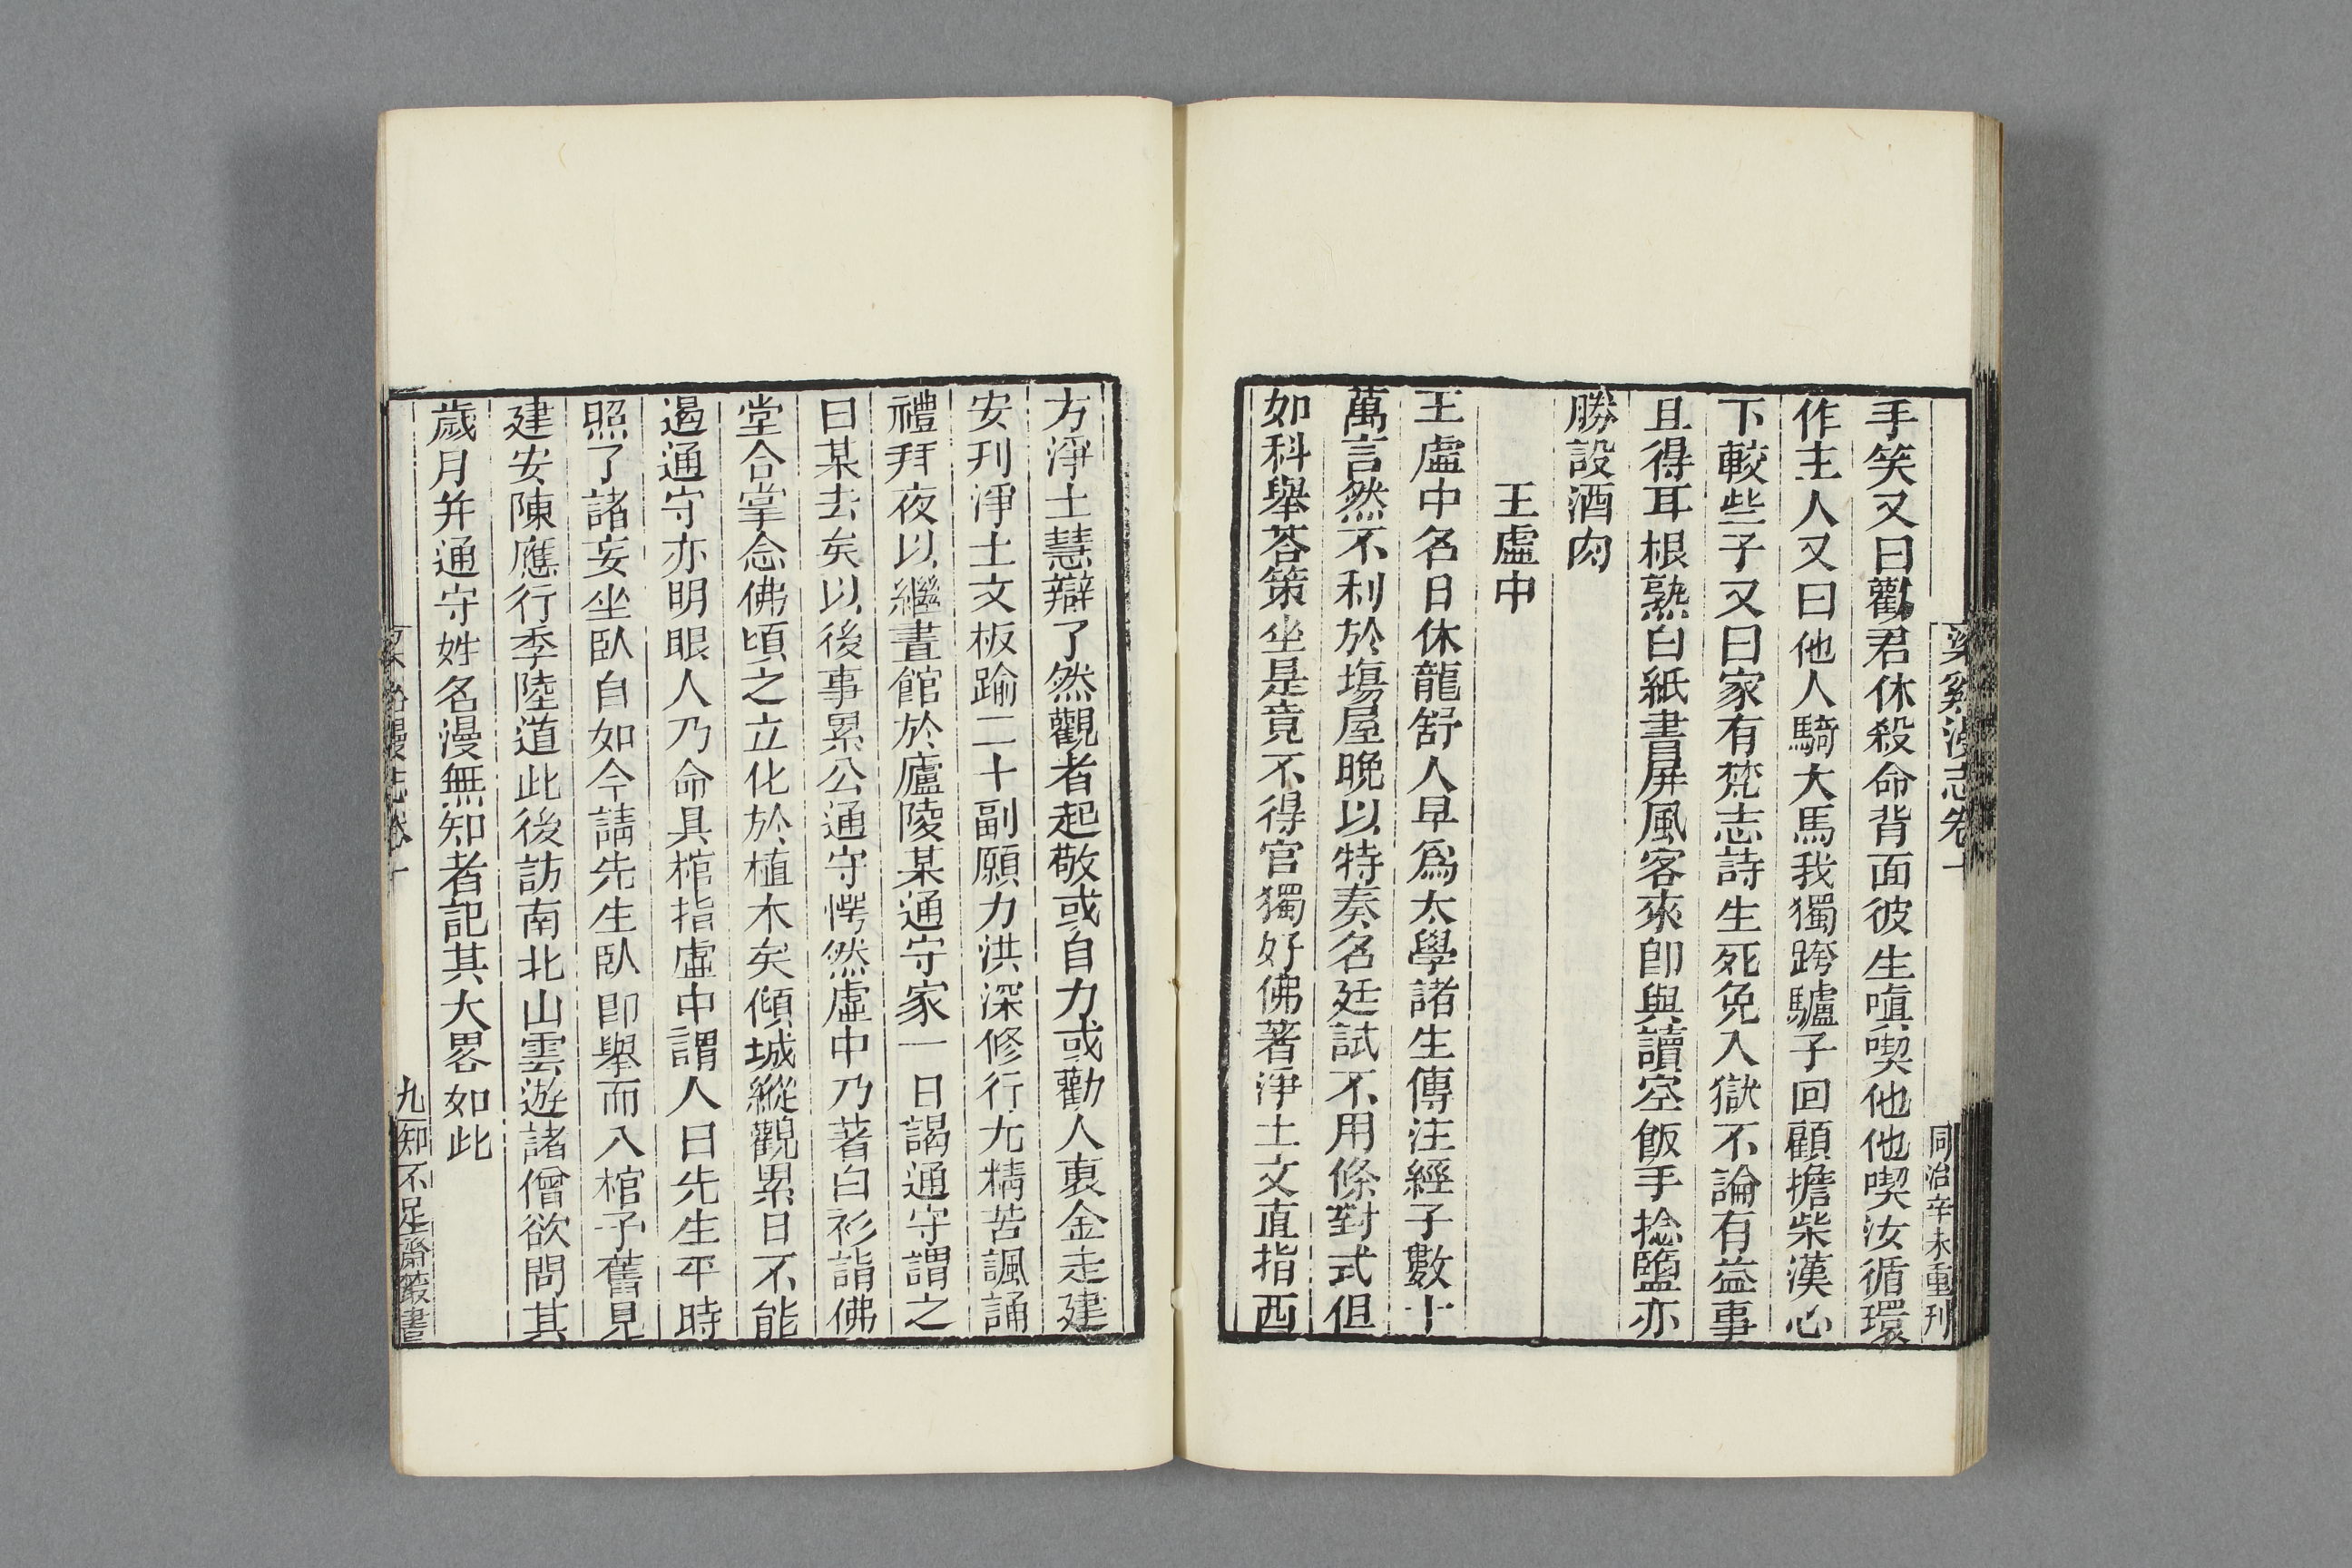 梁谿漫志卷十
同治辛未重刊
手笑又曰勸君休殺命背面彼生嗔喫他他喫汝循環
作主人又曰他人騎大馬我獨跨驢子回顧擔柴漢心
下較些子又曰家有梵志詩生死免入獄不論有益事
且得耳根熟白紙書屏風客來卽與讀空飯手捻鹽亦
勝設酒肉
王虛中
王虛中名日休龍舒人早爲太學諸生傳注經子數十
萬言然不利於場屋晚以特奏名廷試不用條對式但
如科舉荅策坐是竟不得官獨好佛著淨土文直指西
方淨土慧辯了然觀者起敬或自力或勸人裒金走建
安刋淨土文板踰二十副願力洪深修行尤精苦諷誦
禮拜夜以繼晝館於廬陵某通守家一日謁通守謂之
曰某去矣以後事累公通守愕然虛中乃著白衫詣佛
堂合掌念佛頃之立化於植木矣傾城縱觀累日不能
遏通守亦明眼人乃命具棺指虛中謂人曰先生平時
照了諸妄坐臥自如今請先生臥卽舉而入棺予舊見
建安陳應行季陸道此後訪南北山雲遊諸僧欲問其
歲月并通守姓名漫無知者記其大畧如此
梁谿漫志卷十
九
知不足齋叢書